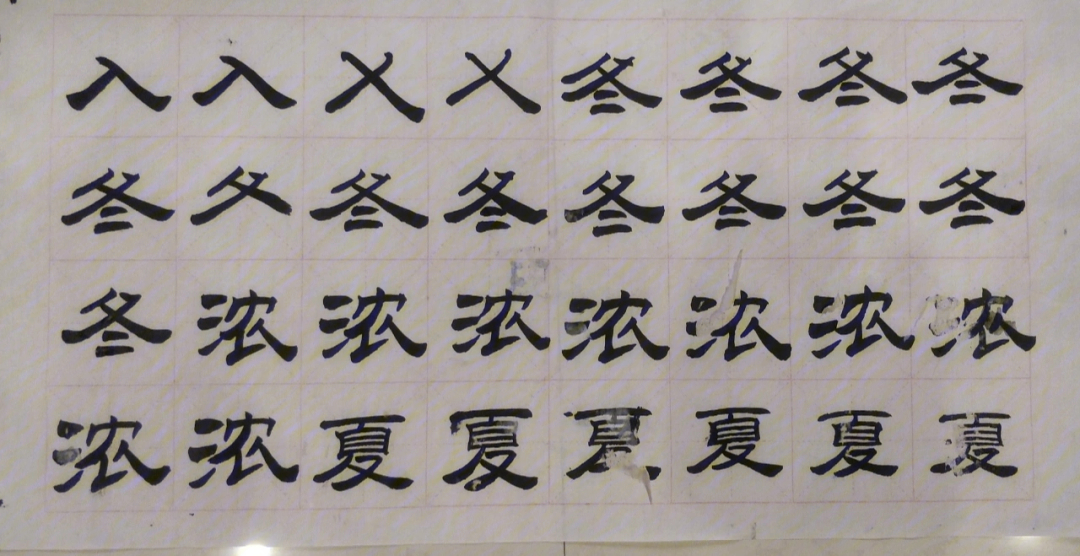 入入乂乂冬冬冬冬
冬夂冬冬冬冬冬冬
冬浓浓浓浓浓浓浓
浓浓夏夏夏夏夏夏